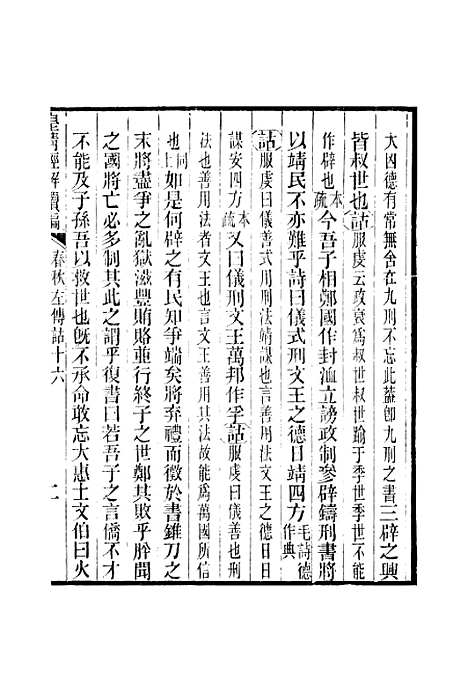 大凶德有常無舍在九刑不忘此蓋卽九刑之書三辟之興
皆叔世也詁服虔云政衰爲叔世叔世踰于季世季世不能
作辟也本疏今吾子相鄭國作封洫立謗政制參辟鑄刑書將
以靖民不亦難乎詩曰儀式刑文王之德日靖四方毛詩德作典
詁服虔曰儀善式用刑法靖謀也言善用法文王之德日日
謀安四方本疏又曰儀刑文王萬邦作孚詁服虔曰儀善也刑
法也善用法者文王也言文王善用其法故能爲萬國所信
也同上如是何辟之有民知爭端矣將弃禮而徵於書錐刀之
末將盡爭之亂獄滋豐賄賂並行終子之世鄭其敗乎肸聞
之國將亡必多制其此之謂乎復書曰若吾子之言僑不才
不能及子孫吾以救世也旣不承命敢忘大惠士文伯曰火
皇清經解續編 春秋左傳詁十六 二